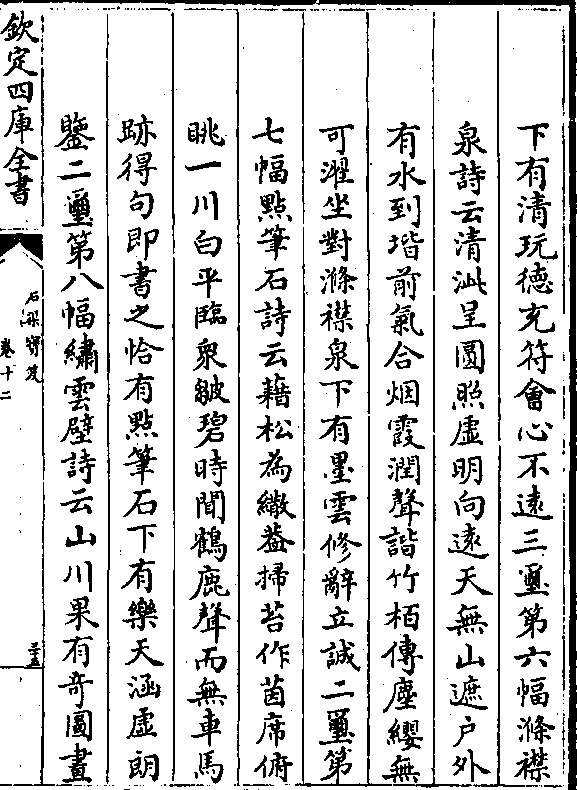 下有清玩德充符會心不遠三璽第六幅滌襟
泉詩云清泚呈圓照虛明向遠天無山遮户外
有水到堦前氣合烟霞潤聲諧竹栢傳塵纓無
可濯坐對滌襟泉下有墨雲修辭立誠二璽第
七幅點筆石詩云藉松為繖蓋掃苔作茵席俯
眺一川白平臨衆皴碧時聞鶴鹿聲而無車馬
跡得句即書之恰有點筆石下有樂天涵虛朗
鑒二璽第八幅繡雲壁詩云山川果有奇圖畫
欽定四庫全書
石渠寶笈
卷十二
三十五